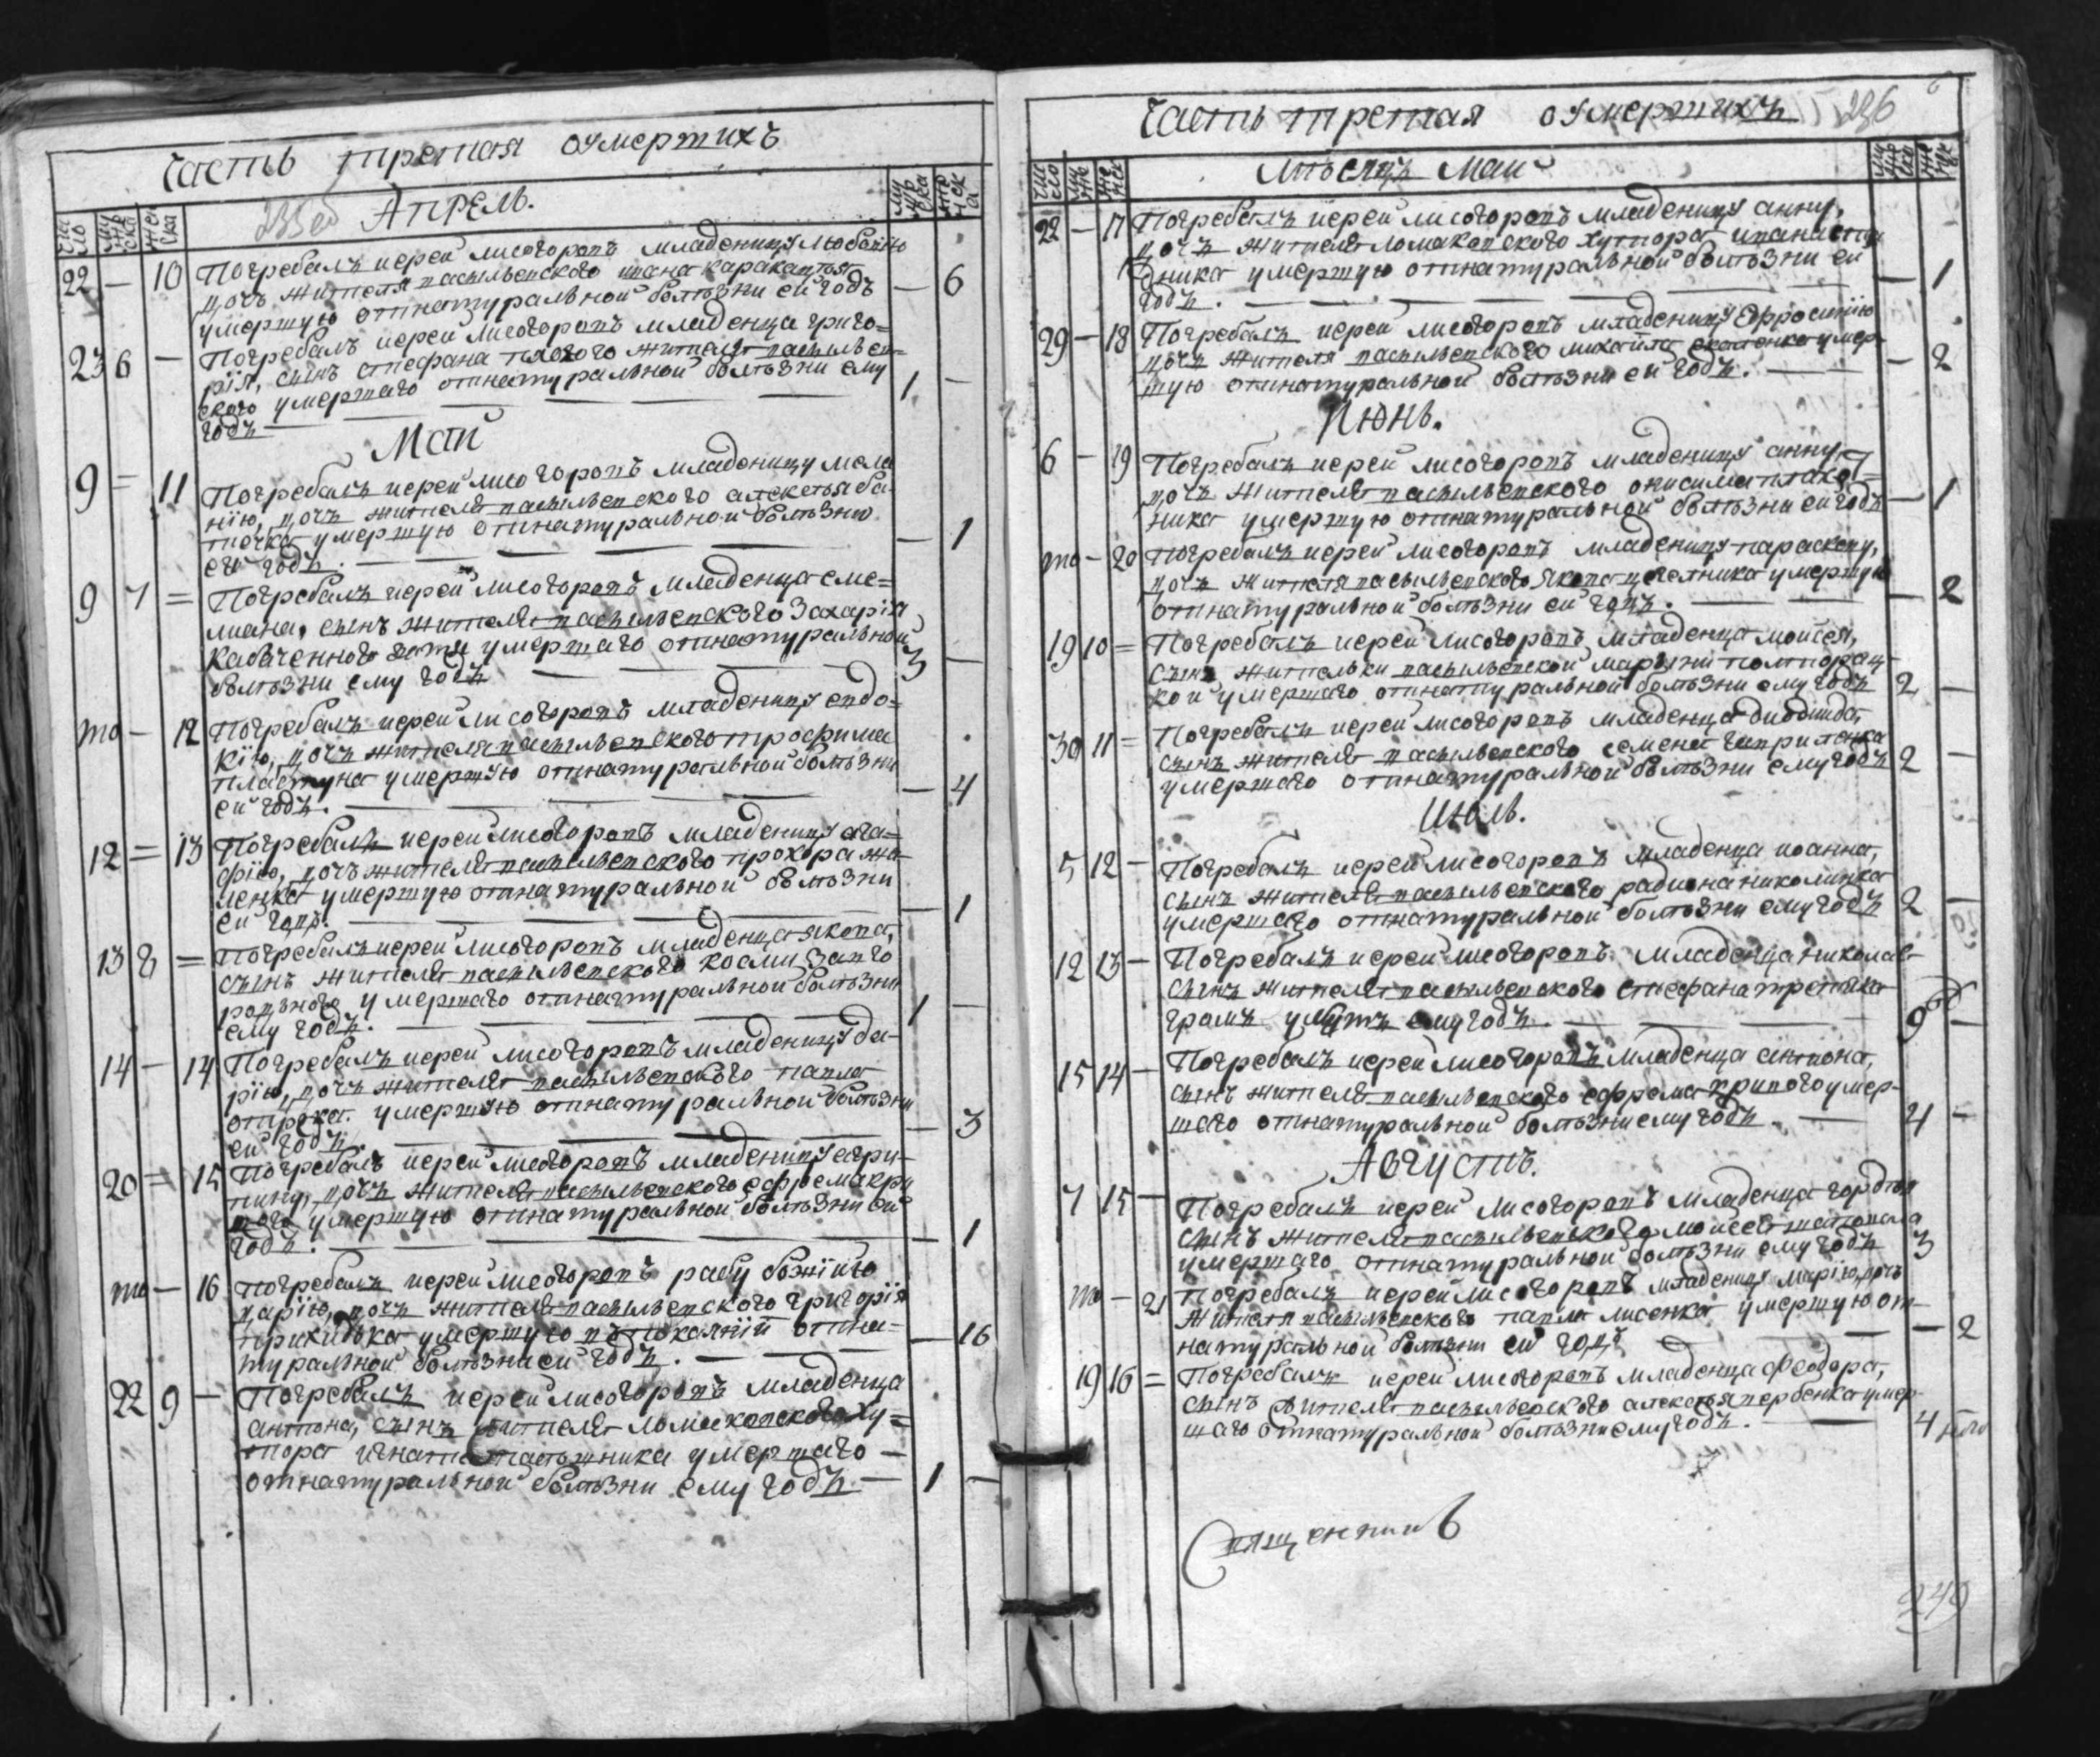 Часть третая о умершихъ
Апрель.
число мужеска женска
мужеска женска
22 — 10 Погребалъ иерей лисогоровъ младеницу любовїю
дочь жителя васильевского ивана каракаптея
умершую отнатуральной болѣзни ей годъ — 6
23 6 — Погребалъ иерей лисогоровъ младенца григо=
рїя, сынъ стефана жителя васильев=
ского умершаго отнатуральной болѣзни ему
годъ 1 —
Маи
9 = 11 Погребалъ иерей лисогоровъ младеницу мела
нїю, дочь жителя васильевского алексѣя
умершую отнатуральной болѣзни
ей годъ. — 1
9 7 = Погребалъ иерей лисогоровъ младенца еме=
лиана, сынъ жителя васильевского захарїя
умершаго отнатуральной
болѣзни ему годъ 3 —
то — 12 Погребалъ иерей лисогоровъ младеницу евдо=
кїю, дочь жителя васильевского трофима
пластуна умершую отнатуральной болѣзни
ей годъ. — 4
12 = 13 Погребалъ иерей лисогоровъ младеницу ага=
фїю, дочь жителя васильевского прохора
умершую отнатуральной болѣзни
ей годъ. — 1
13 8 = Погребалъ иерей лисогоровъ младенца якова,
сынъ жителя васильевского космы
умершаго отнатуральной болѣзни
ему годъ. 1 —
14 — 14 Погребалъ иерей лисогоровъ младеницу да-
рїю, дочь жителя васильевского павла
умершую отнатуральной болѣзни
ей годъ. — 3
20 = 15 Погребалъ иерей лисогоровъ младеницу агри-
пину, дочь жителя васильевского ефрема кри
вого умершую отнатуральной болѣзни ей
годъ. — 1
то — 16 погребалъ иерей лисогоровъ рабу божїию
дарїю, дочь жителя васильевского григорїя
прихидька умершую въ покаянїи отна=
туральной болѣзни ей годъ. — 16
22 9 — Погребалъ иерей лисогоровъ младенца
антона, сынъ жителя ломаковского ху=
тора игната умершаго —
отнатуральной болѣзни ему годъ. — 1 —
Часть третая о умершихъ 236
Мѣсяцъ Маи
число мужеска женска
22 — 17 Погребалъ иерей лисогоровъ младеницу анну,
дочь жителя ломаковского хутора
умершую отнатуральной болѣзни ей
годъ. — 1
29 — 18 Погребалъ иерей лисогоровъ младеницу Ефросинїю
дочь жителя васильевского михайла умер-
шую отнатуральной болѣзни ей годъ. — 2
Июнь.
6 — 19 Погребалъ иерей лисогоровъ младеницу анну,
дочь жителя васильевского онисима
умершую отнатуральной болѣзни ей годъ — 1
то — 20 Погребалъ иерей лисогоровъ младеницу параскеву,
дочь жителя васильевского якова умершую
отнатуральной болѣзни ей годъ. — 2
19 10 = Погребалъ иерей лисогоровъ младенца моисея,
сынъ жительки васильевской
умершаго отнатуральной болѣзни ему годъ 2 —
30 11 = Погребалъ иерей лисогоровъ младенца
сынъ жителя васильевского семена гавриленка
умершаго отнатуральной болѣзни ему годъ 2 —
Июль.
5 12 — Погребалъ иерей лисогоровъ младенца иоанна,
сынъ жителя васильевского радиона николенка
умершаго отнатуральной болѣзни ему годъ 2 —
12 13 — Погребалъ иерей лисогоровъ младенца николая
сынъ жителя васильевского стефана третяка
громъ убитъ ему годъ. 9 —
15 14 — Погребалъ иерей лисогоровъ младенца антона,
сынъ жителя васильевского ефрема кривого умер-
шаго отнатуральной болѣзни ему годъ. 4 —
Августъ.
7 15 — Погребалъ иерей лисогоровъ младенца гордѣя
сынъ жителя васильевского моисея шаповала
умершаго отнатуральной болѣзни ему годъ 3
то — 21 Погребалъ иерей лисогоровъ младеницу марїю, дочь
жителя васильевского павла лисенка умершую от-
натуральной болѣзни ей годъ — 2
19 16 = Погребалъ иерей лисогоровъ младенца феодора,
сынъ жителя васильевского алексѣя вербенка умер
шаго отнатуральной болѣзни ему годъ. 4
Священникъ
249